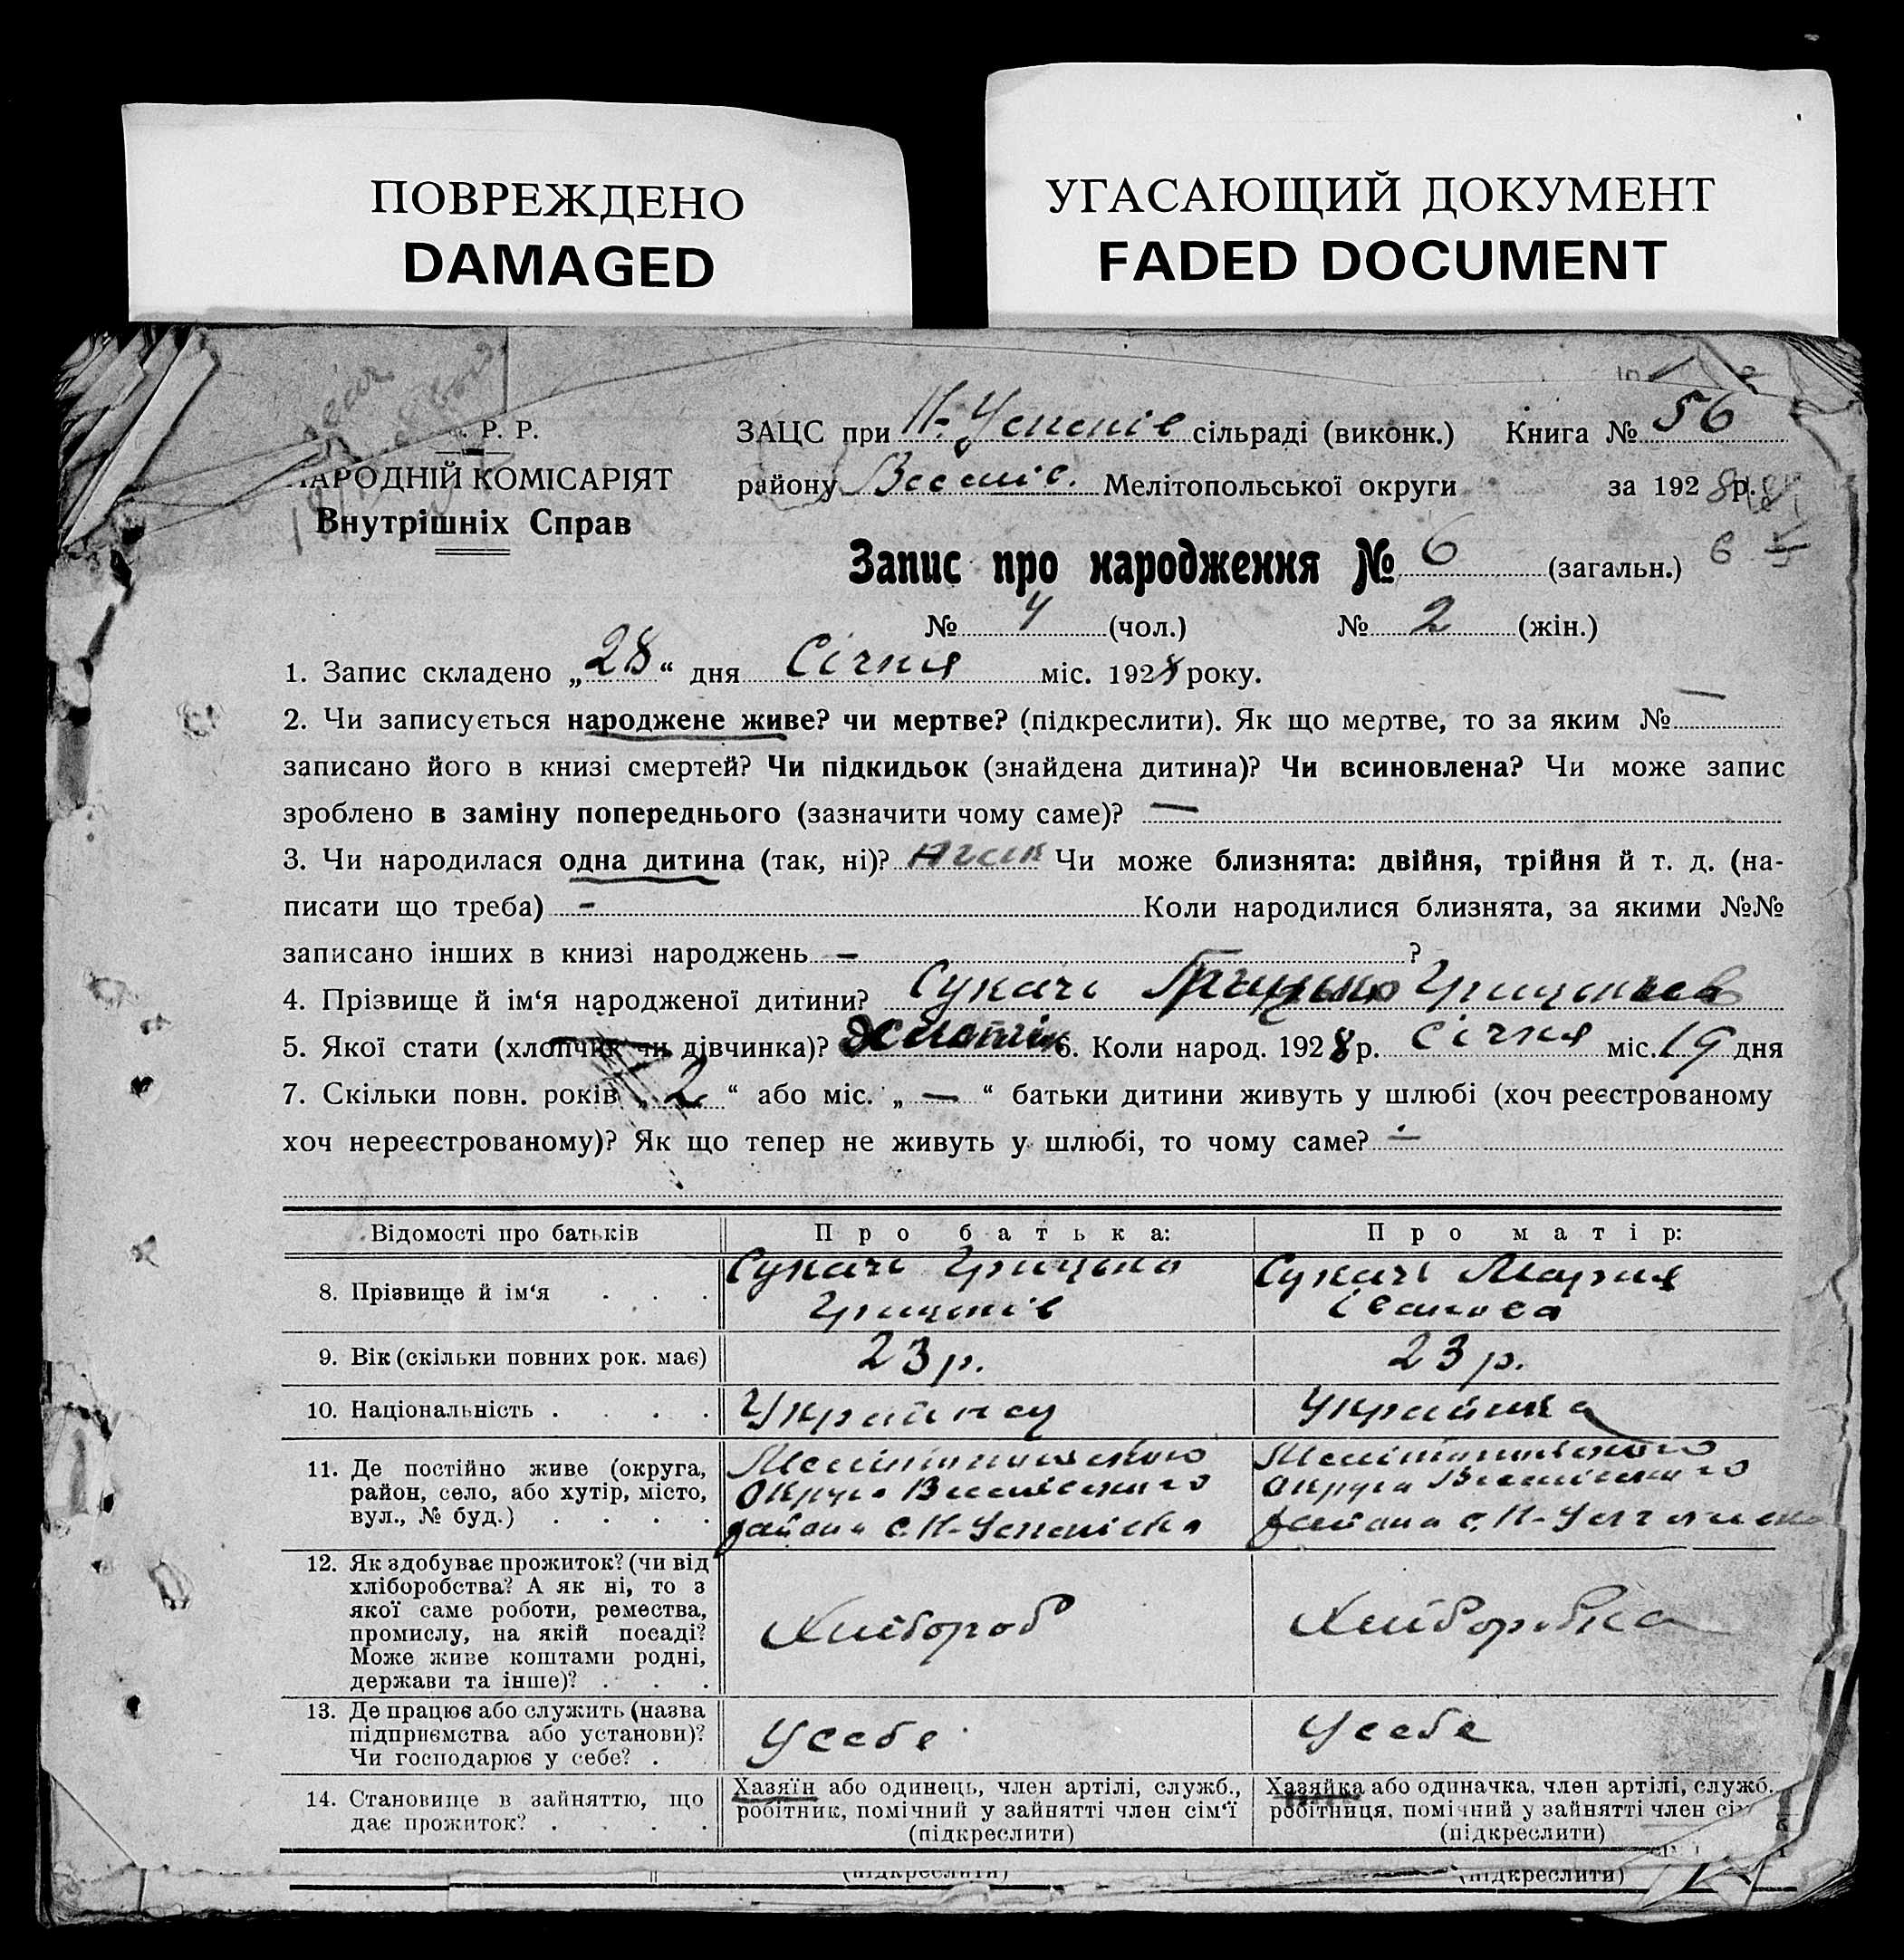 ПОВРЕЖДЕНО
DAMAGED
УГАСАЮЩИЙ ДОКУМЕНТ
FADED DOCUMENT
Р. Р.
НАРОДНІЙ КОМІСАРІЯТ
Внутрішніх Справ
ЗАЦС при Н-Успенів сільраді (виконк.) Книга № 56
району Веселів. Мелітопольської округи за 1928 р.
Запис про народження № 6 (загальн.) 6
№ 4 (чол.) № 2 (жін.)
1. Запис складено „28“ дня Січня міс. 1928 року.
2. Чи записується народжене живе? чи мертве? (підкреслити). Як що мертве, то за яким № —
записано його в книзі смертей? Чи підкидьок (знайдена дитина)? Чи всиновлена? Чи може запис
зроблено в заміну попереднього (зазначити чому саме)? —
3. Чи народилася одна дитина (так, ні)? Чи може близнята: двійня, трійня й т. д. (на-
писати що треба) - Коли народилися близнята, за якими №№
записано інших в книзі народжень — ?
4. Прізвище й ім‘я народженої дитини? Сукачь Грицько Грицьков
5. Якої статі (хлопчик чи дівчинка)? 6. Коли народ. 1928 р. Січня міс. 19 дня
7. Скільки повн. років „2“ або міс. „—“ батьки дитини живуть у шлюбі (хоч реєстрованому
хоч нереєстрованому)? Як що тепер не живуть у шлюбі, то чому саме? —
Відомості про батьків Про батька: Про матір:
8. Прізвище й ім‘я . . . Сукачь Грицько Сукачь Мария
Грицьків Іванова
9. Вік (скільки повних рок. має) 23 р. 23 р.
10. Національність . . . . Украінец Украінка
11. Де постійно живе (округа, Мелітопольского Мелітопольского
район, село, або хутір, місто, Округа Веселівского Округа Веселівского
вул., № буд.) . . . . района с. Н-Успенівка района с. Н-Успенівка
12. Як здобуває прожиток? (чи від
хліборобства? А як ні, то з
якої саме роботи, ремества,
промислу, на якій посаді? Хлібороб Хліборобка
Може живе коштами родні,
держави та інше)? . . .
13. Де працює або служить (назва
підприємства або установи)? У себе У себе
Чи господарює у себе? . .
14. Становище в зайняттю, що Хазяїн або одинець, член артілі, служб., Хазяйка або одиначка, член артілі, служб.,
дає прожиток? . . . . робітник, помічний у зайнятті член сім‘ї робітниця, помічний у зайнятті член сім
(підкреслити) (підкреслити)
(підкреслити) (підкреслити)